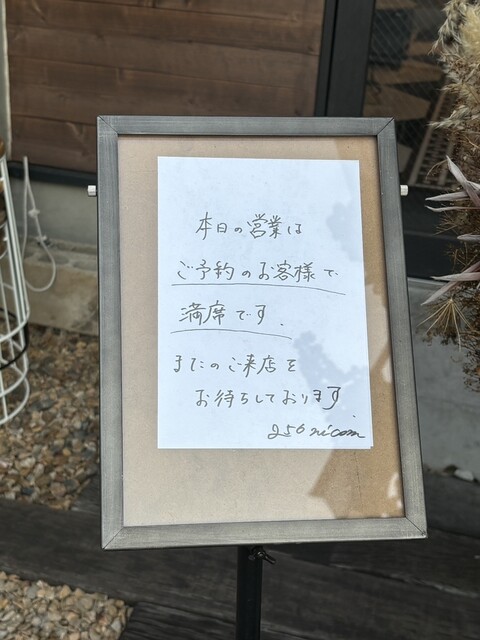 本日の営業は
ご予約のお客様で
満席です.
またのご来店を
お待ちしております.
256nicom